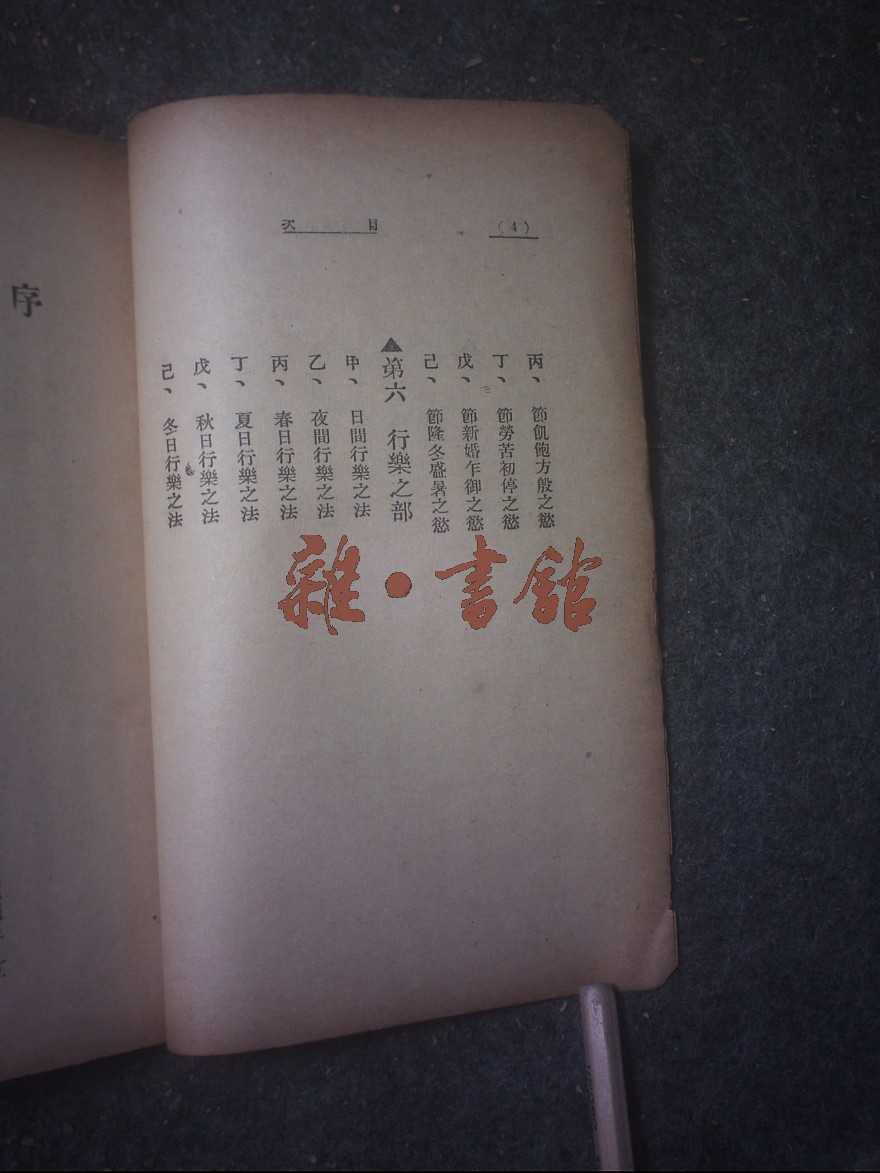 (4)
目次
丙、節飢飽方殷之慾
丁、節勞苦初停之慾
戊、節新婚乍御之慾
己、節隆冬盛暑之慾
▲第六 行樂之部
甲、日間行樂之法
乙、夜間行樂之法
丙、春日行樂之法
丁、夏日行樂之法
戊、秋日行樂之法
己、冬日行樂之法
序
雜·書館